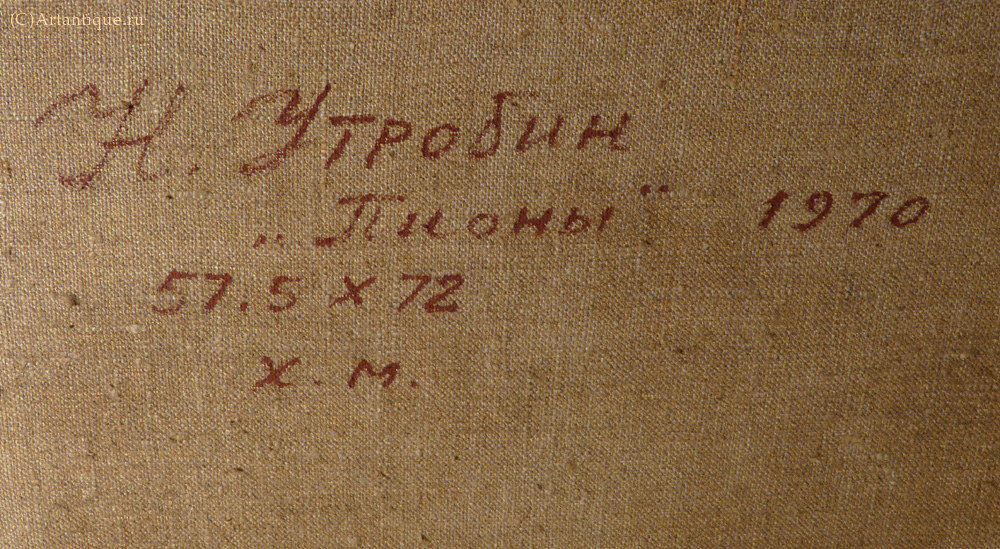 (C)Artantique.ru
Н. Утробин
„Пионы" 1970
57.5 х 72
х. м.